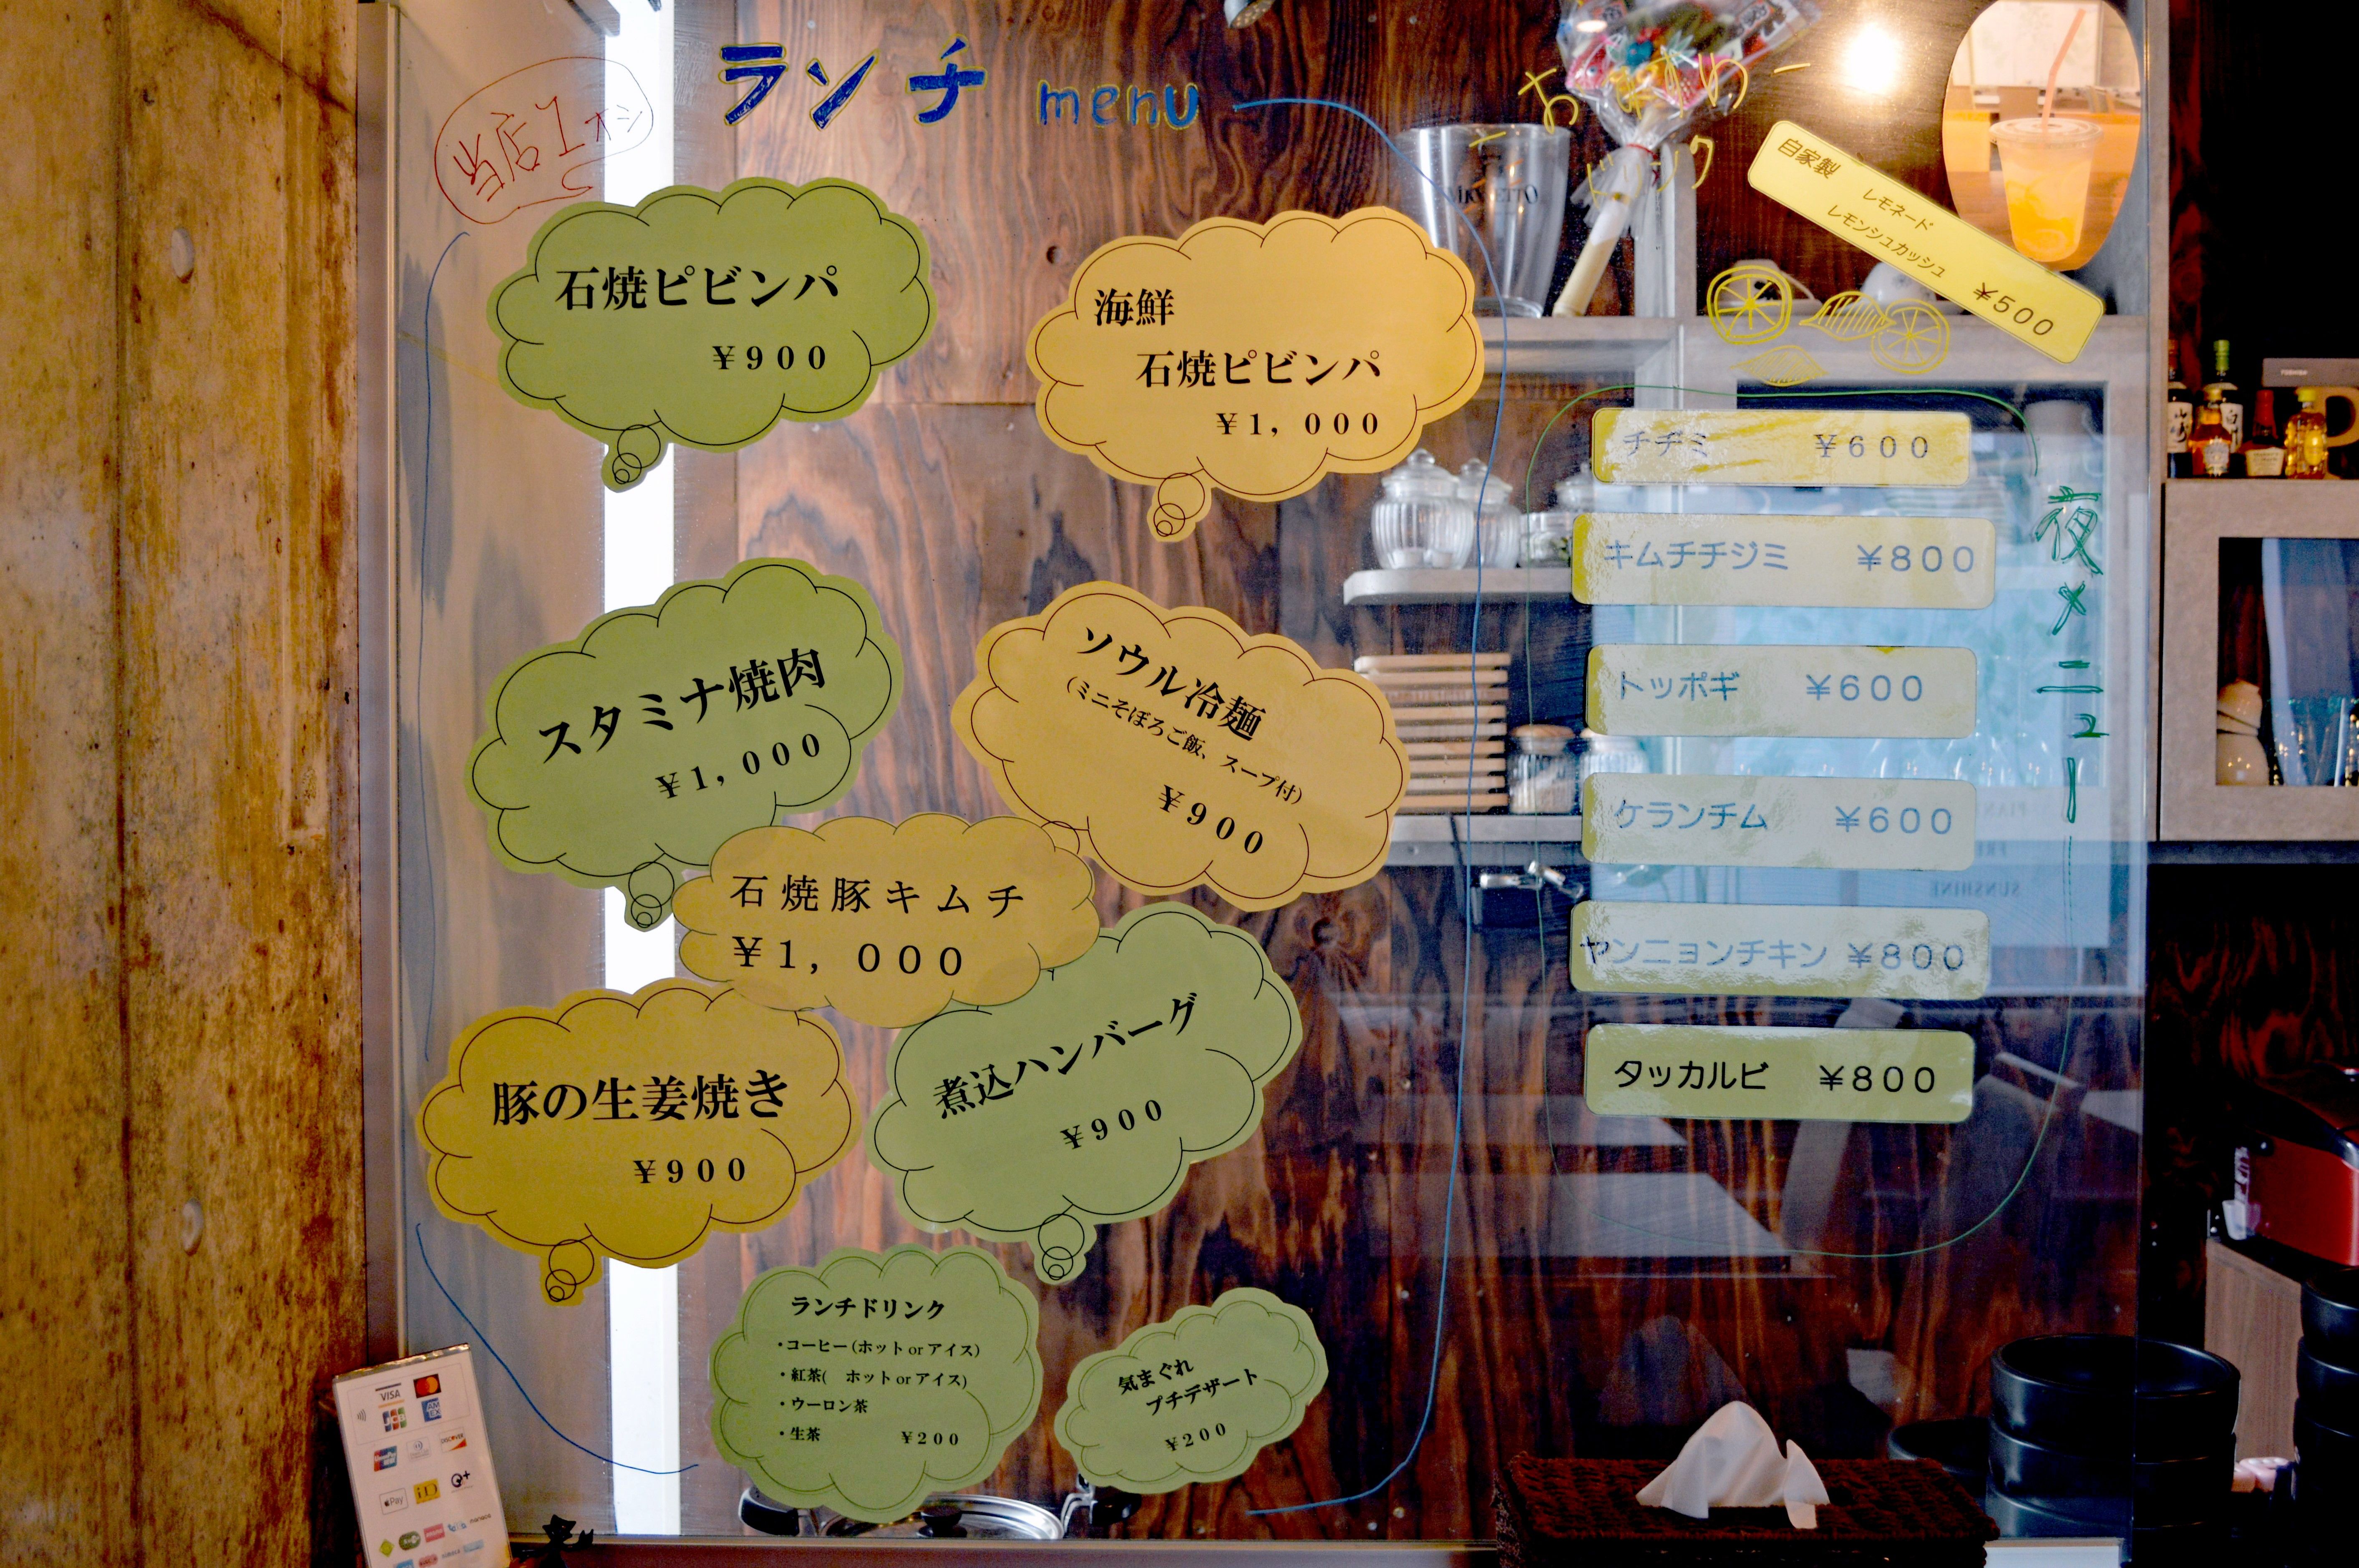 ランチ menu
当店1オシ
石焼ピビンパ
￥900
海鮮
石焼ピビンパ
￥1,000
スタミナ焼肉
￥1,000
ソウル冷麺
(ミニそぼろご飯、スープ付)
￥900
石焼豚キムチ
￥1,000
豚の生姜焼き
￥900
煮込ハンバーグ
￥900
ランチドリンク
・コーヒー(ホット or アイス)
・紅茶( ホット or アイス)
・ウーロン茶
・生茶 ￥200
気まぐれ
プチデザート
￥200
ドリンク
自家製 レモネード
レモンシュカッシュ
￥500
夜メニュー
チヂミ ￥600
キムチチジミ ￥800
トッポギ ￥600
ケランチム ￥600
ヤンニョンチキン ￥800
タッカルビ ￥800
TOSHIBA
SUNSHINE
VISA
JCB
AMEX
DISCOVER
Pay
iD